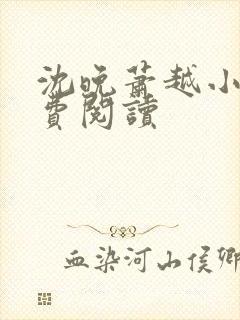 沈晚蕭越小
費閱讀
血染河山侯卿